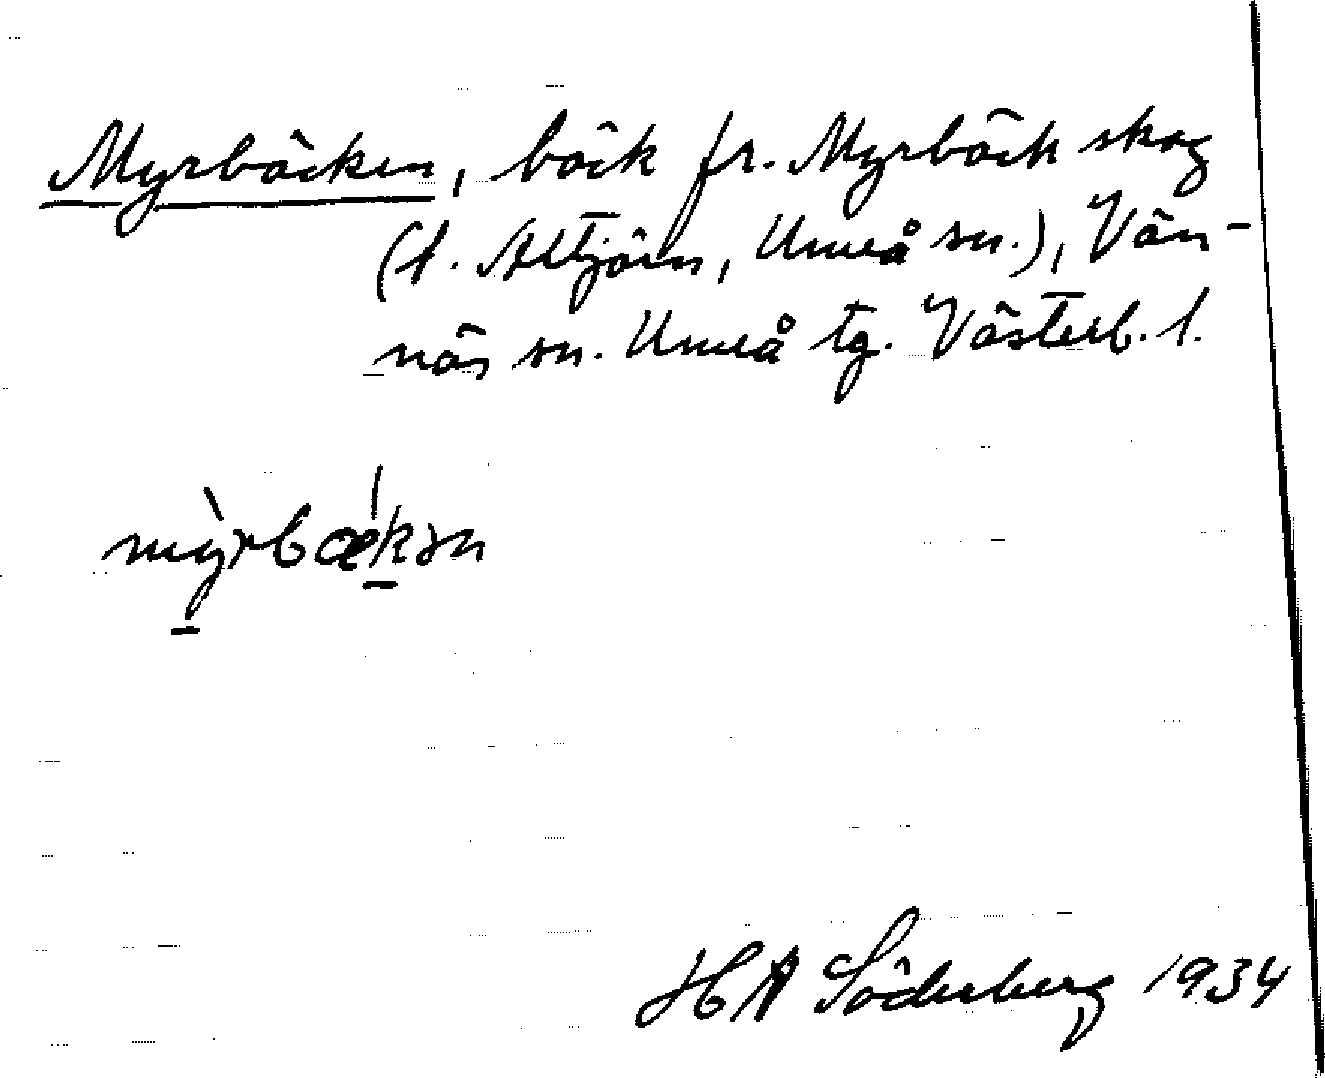 Myrbäcken, bäck fr. Myrbäck skog
(t. Altjärn, Umeå sn.), Vän-
näs sn. Umeå tg. Västerb. l.
mỳrbæ̀kən
HA Söderberg 1934